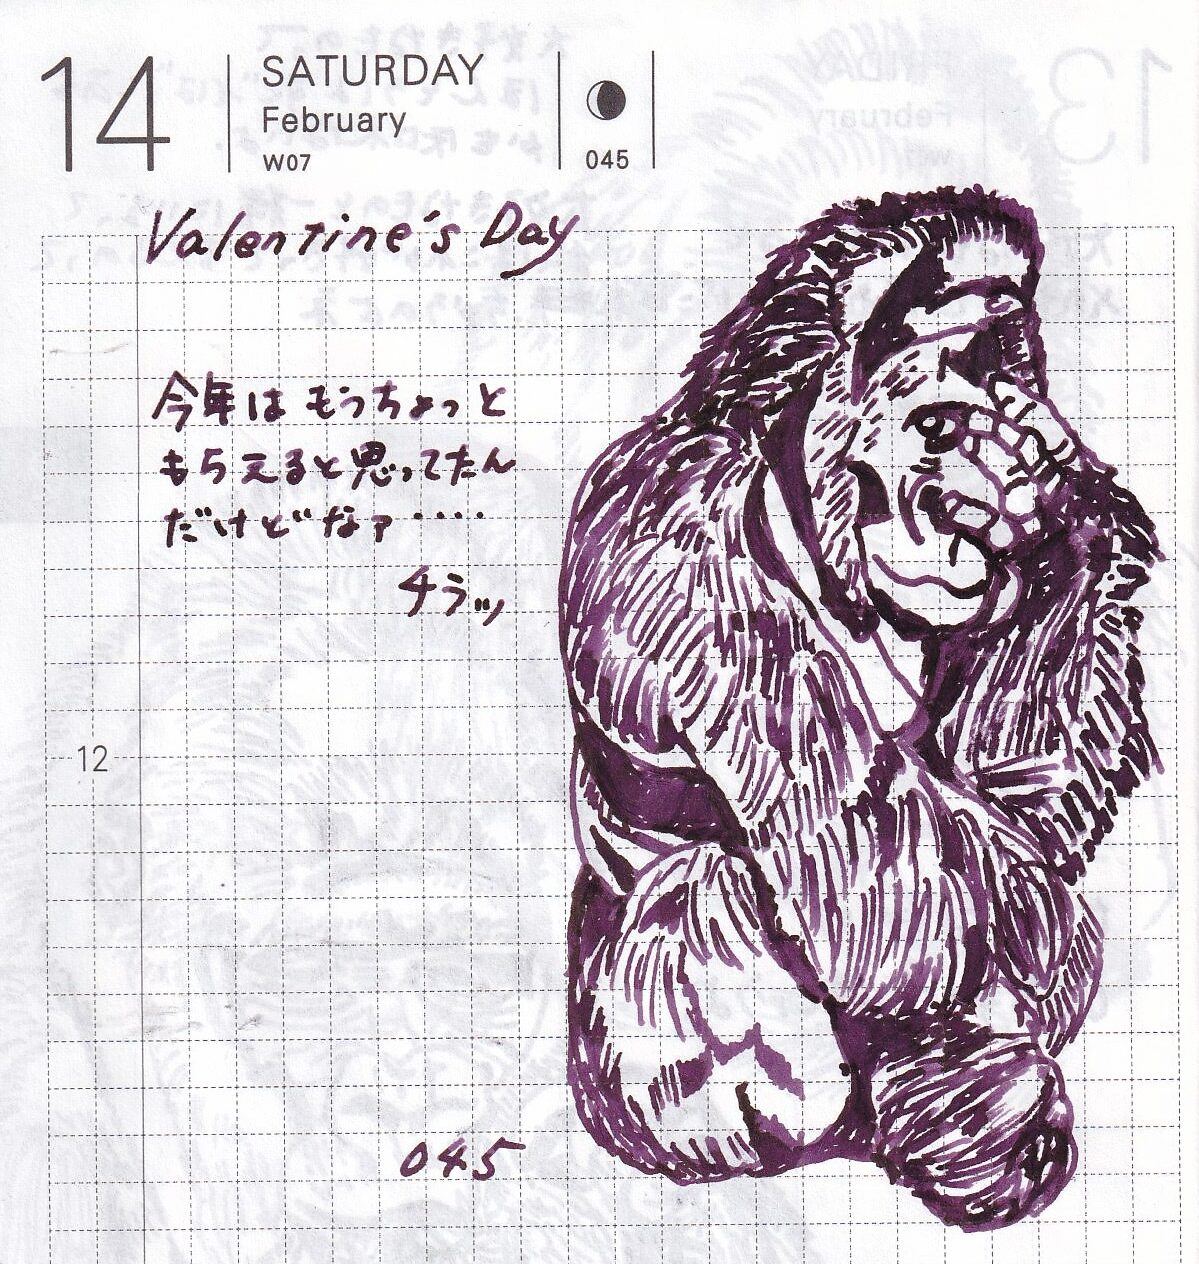 14
SATURDAY
February
W07
045
Valentine's Day
今年はもうちょっと
もらえると思ってたん
だけどなァ・・・・
チラッ
12
045